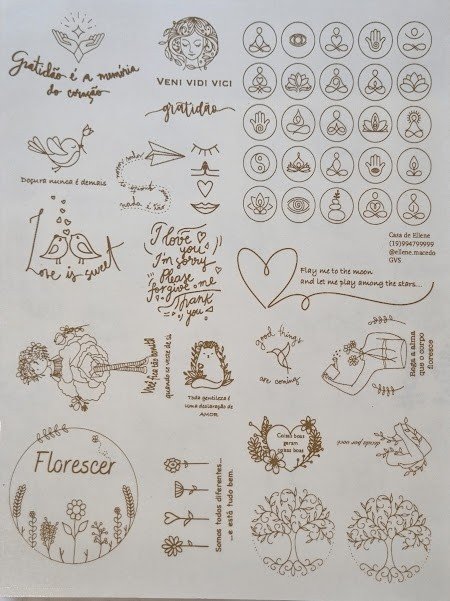 Gratidão é a memória
do coração
VENI VIDI VICI
gratidão
Doçura nunca é demais
Love is sweet
I love you
I'm sorry
Please
Forgive me
Thank
you
Casa de Ellene
(19)994799999
@ellene.macedo
GVS
Flay me to the moon
and let me play among the stars...
quando se veste de si
Toda gentileza é
uma declaração de
AMOR
good things
are coming
Rega a alma
que o corpo
floresce
Florescer
Somos todas diferentes...
...e está tudo bem.
Coisas boas
geram
coisas boas